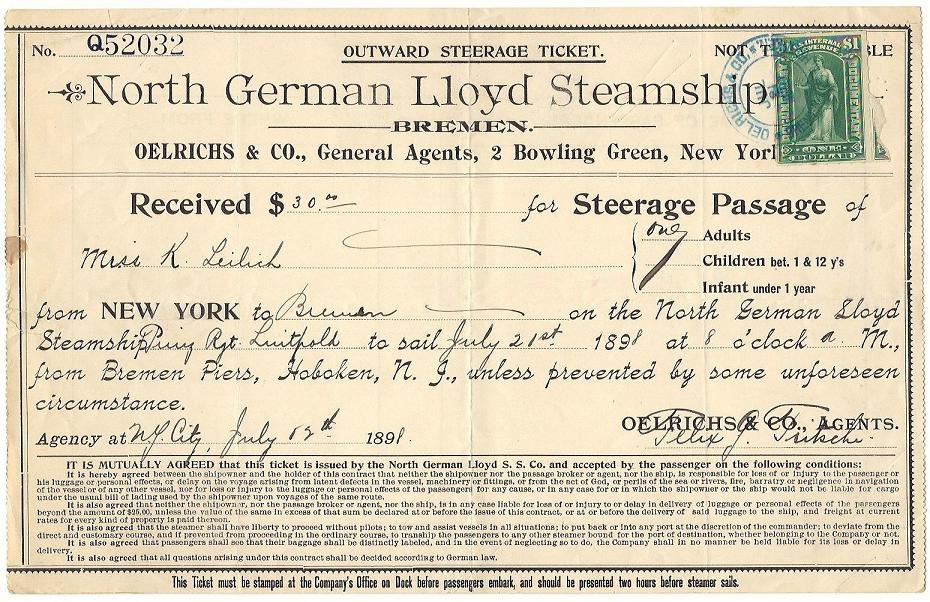 No. Q52032 OUTWARD STEERAGE TICKET. NOT T BLE
North German Lloyd Steamship
BREMEN.
OELRICHS & CO., General Agents, 2 Bowling Green, New York
U.S. INTERNAL REVENUE $1
DOCUMENTARY
ONE DOLLAR
OELRICHS & CO.
Received $ 30.00 for Steerage Passage of
Miss K. Leilich
one Adults
Children bet. 1 & 12 y's
Infant under 1 year
from NEW YORK to Bremen on the North German Lloyd
Steamship Prinz Rgt. Luitpold to sail July 21st 1898 at 8 o'clock a M.,
from Bremen Piers, Hoboken, N. J., unless prevented by some unforeseen
circumstance.
OELRICHS & CO., AGENTS.
Agency at N.Y. City, July 1898.
Felix J.
IT IS MUTUALLY AGREED that this ticket is issued by the North German Lloyd S. S. Co. and accepted by the passenger on the following conditions:
It is hereby agreed between the shipowner and the holder of this contract that neither the shipowner nor the passage broker or agent, nor the ship, is responsible for loss of or injury to the passenger or
his luggage or personal effects, or delay on the voyage arising from latent defects in the vessel, machinery or fittings, or from the act of God, or perils of the sea or rivers, fire, barratry or negligence in navigation
of the vessel or of any other vessel, nor for loss or injury to the luggage or personal effects of the passenger for any cause, or in any case for or in which the shipowner or the ship would not be liable for cargo
under the usual bill of lading used by the shipowner upon voyages of the same route.
It is also agreed that neither the shipowner, nor the passage broker or agent, nor the ship, is in any case liable for loss of or injury to or delay in delivery of luggage or personal effects of the passengers
beyond the amount of $25.00, unless the value of the same in excess of that sum be declared at or before the issue of this contract, or at or before the delivery of said luggage to the ship, and freight at current
rates for every kind of property is paid thereon.
It is also agreed that the steamer shall have liberty to proceed without pilots; to tow and assist vessels in all situations; to put back or into any port at the discretion of the commander; to deviate from the
direct and customary course, and if prevented from proceeding in the ordinary course, to tranship the passengers to any other steamer bound for the port of destination, whether belonging to the Company or not.
It is also agreed that passengers shall see that their baggage shall be distinctly labeled, and in the event of neglecting so to do, the Company shall in no manner be held liable for its loss or delay in
delivery.
It is also agreed that all questions arising under this contract shall be decided according to German law.
This Ticket must be stamped at the Company's Office on Dock before passengers embark, and should be presented two hours before steamer sails.